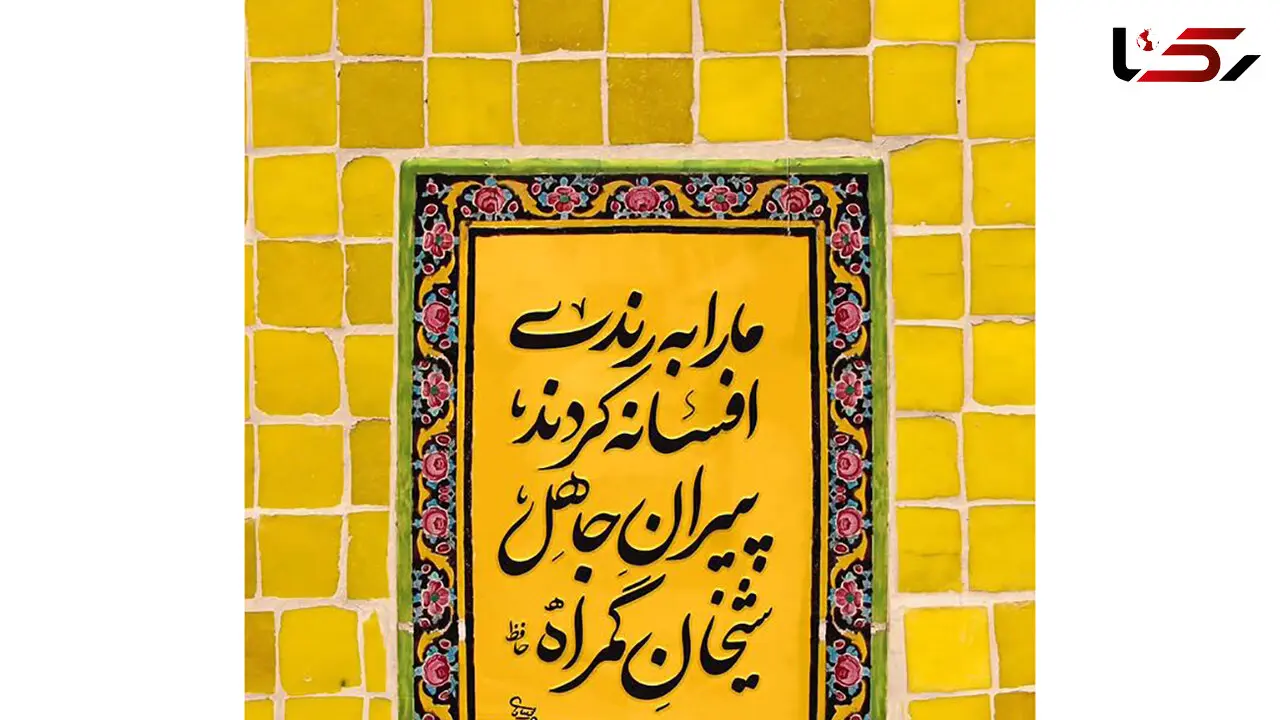 رکنا
ما را به رندی
افسانه کردند
پیرانِ جاهل
شیخانِ گمراه
حافظ